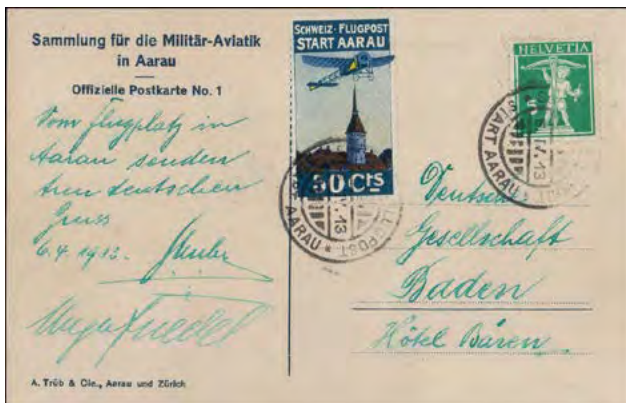 Sammlung für die Militär-Aviatik
in Aarau
Offizielle Postkarte No. 1
Vom Flugplatz in
Aarau senden
treu deutschen
Gruss
6.4 1913.
A. Trüb & Cie., Aarau und Zürich
SCHWEIZ·FLUGPOST
START AARAU
50 Cts
HELVETIA
5
START AARAU
FLUGPOST
AARAU
Deutsche
Gesellschaft
Baden
Hôtel Bären